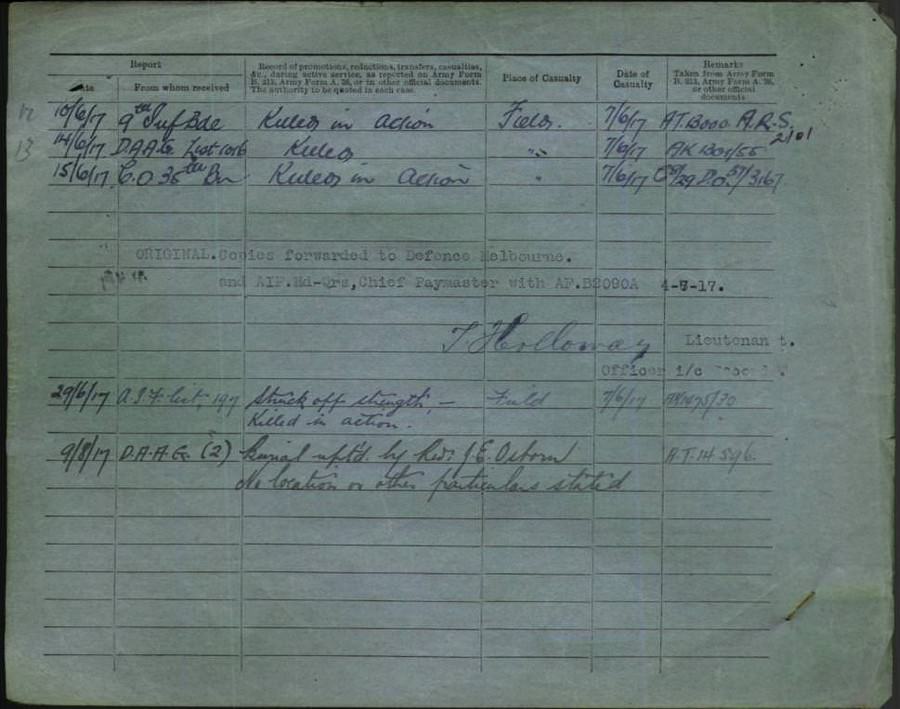 Report
Record of promotions, reductions, transfers, casualties, &c., during active service, as reported on Army Form B. 213, Army Form A. 36, or in other official documents. The authority to be quoted in each case.
Place of Casualty
Date of Casualty
Remarks
Taken from Army Form B. 213, Army Form A. 36, or other official documents
From whom received
10/6/17 9th Inf Bde Killed in action Field. 7/6/17 AT.13000 A.R.S. 2101
13 14/6/17 D.A.A.G. List Killed " 7/6/17 AK
15/6/17 C.O 35th Bn Killed in Action " 7/6/17 D.O. 57/3167
ORIGINAL. Copies forwarded to Defence Melbourne.
and AIF.Hd-Qrs, Chief Paymaster with AF.B2090A 4-7-17.
T Holloway Lieutenant.
Officer i/c Records.
29/6/17 A.I.F. list, 197 Struck off strength, - Field 7/6/17
Killed in action.
9/8/17 D.A.A.G. (2) Burial rept'd by Rev. J.E. Osborn A.T.14596.
No location or other particulars stated